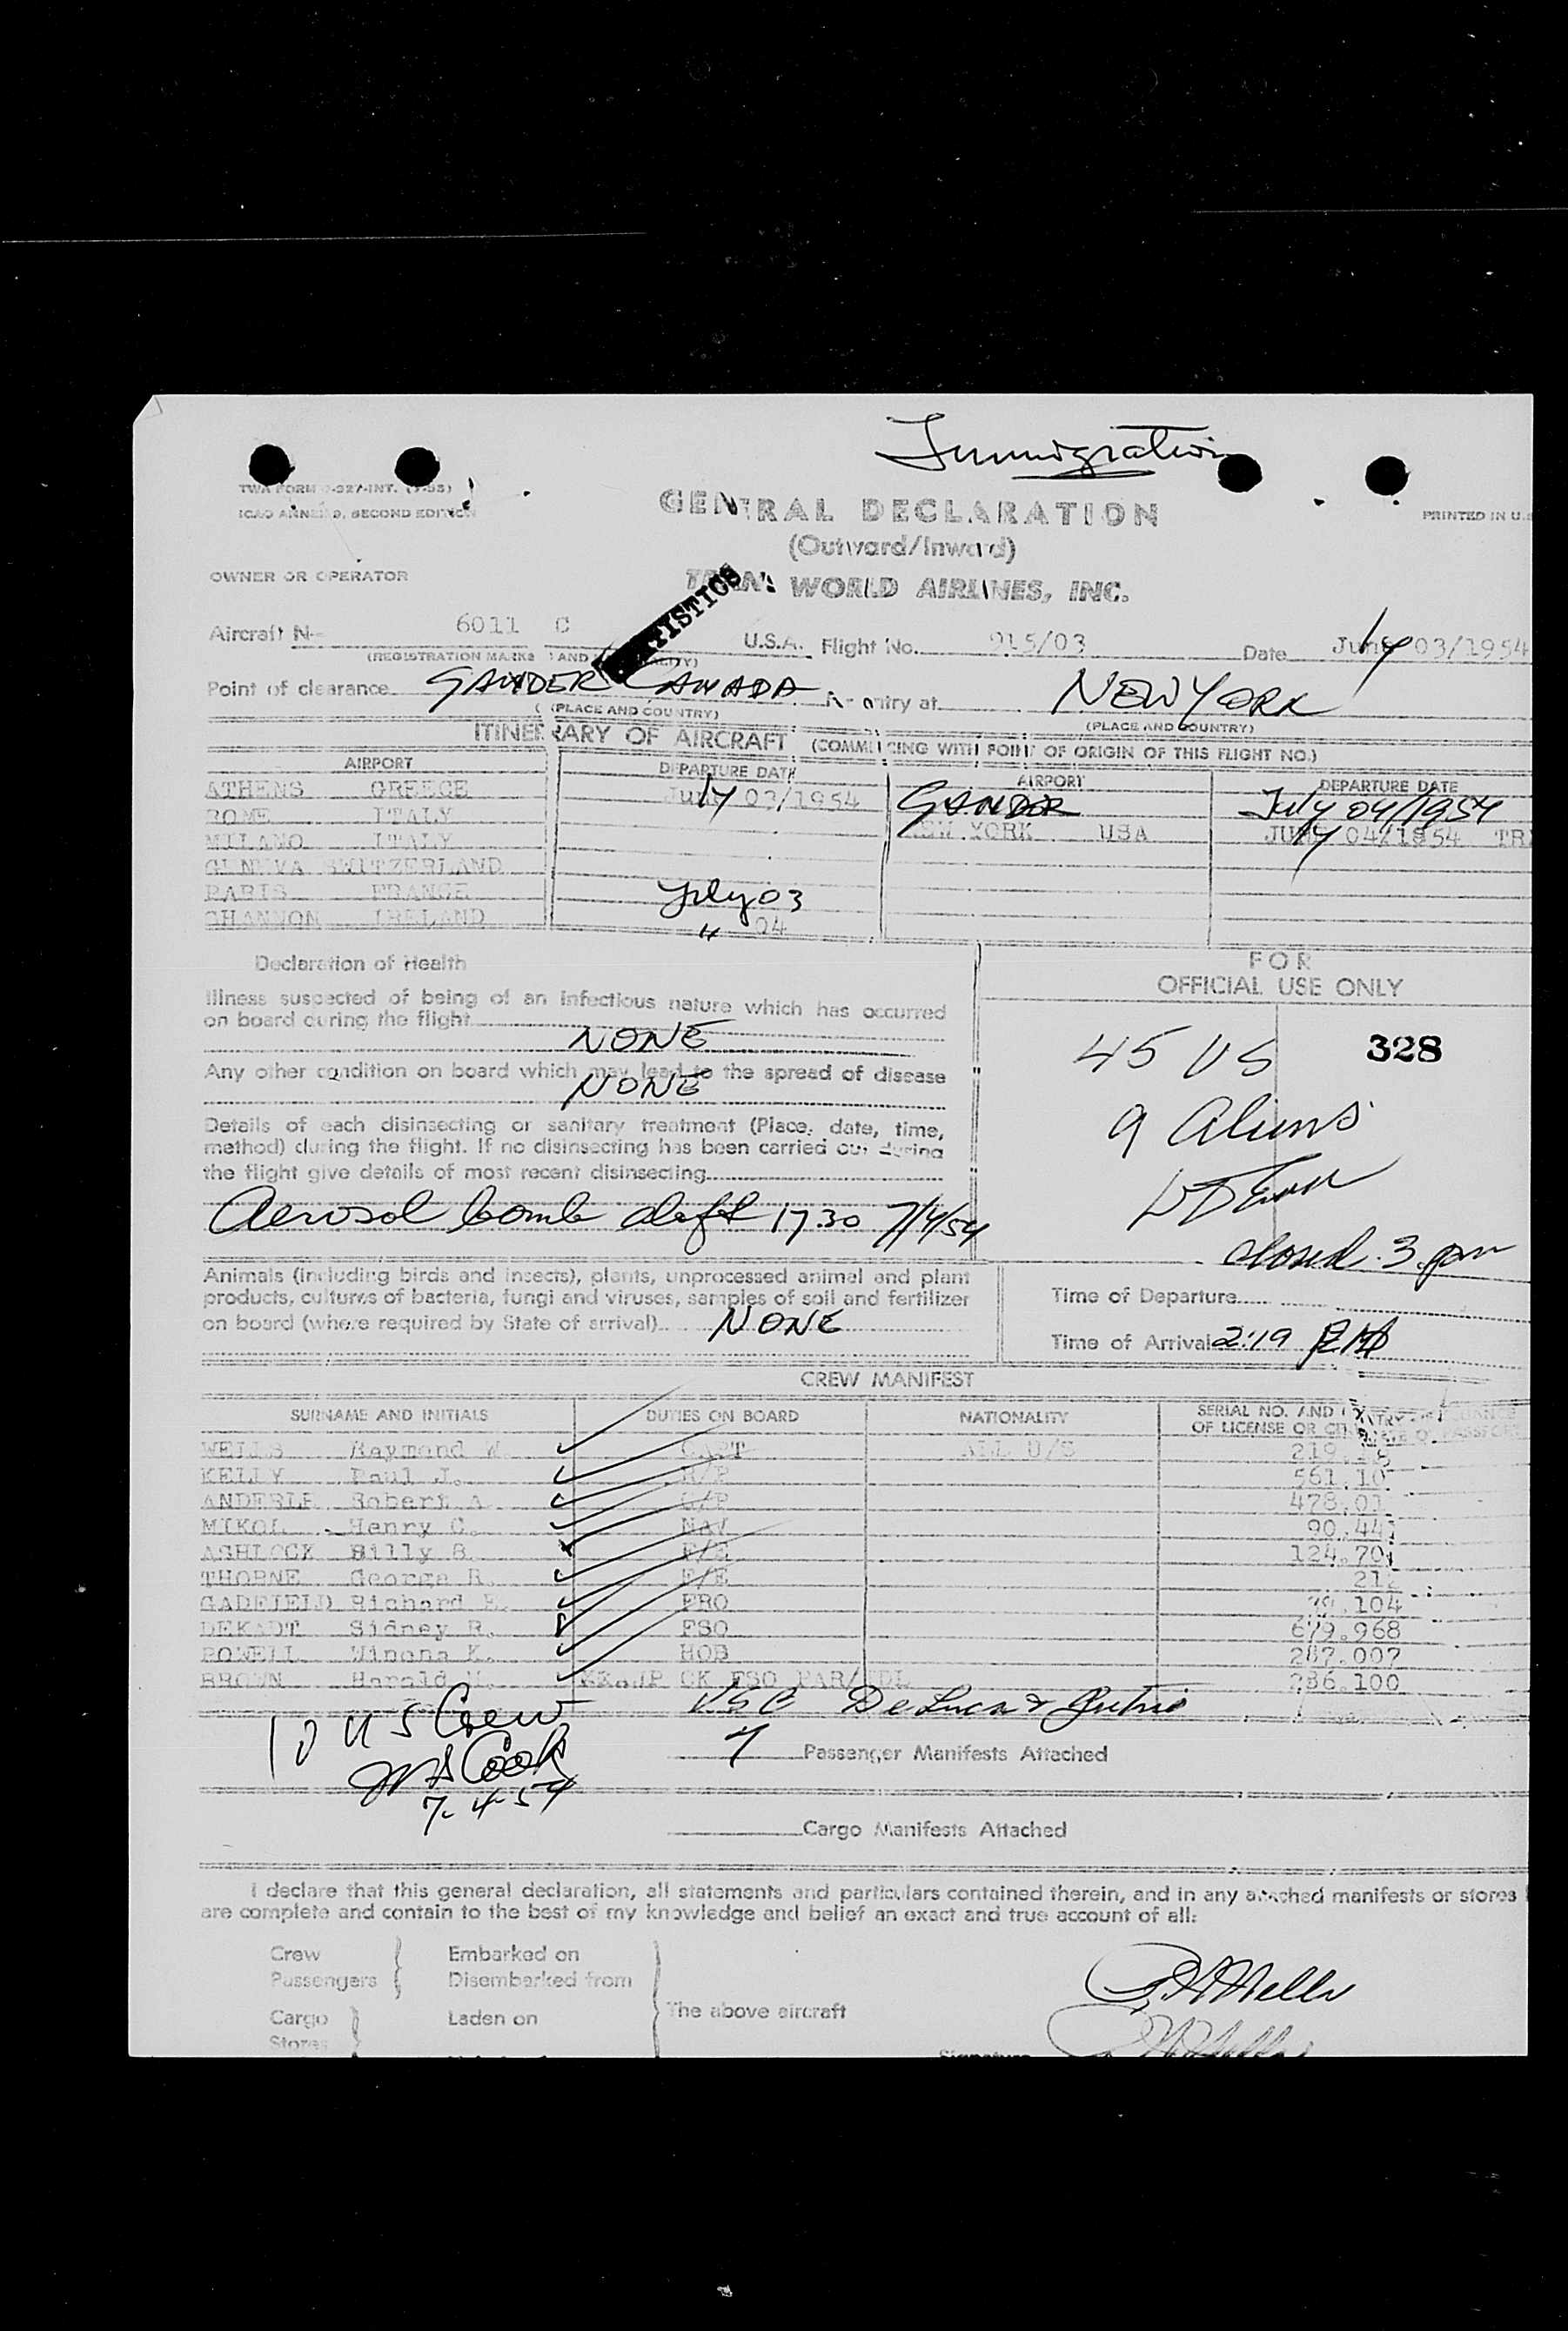 Immigration
TWA FORM
ICAO ANNEX 9, SECOND EDITION
PRINTED IN U.S
GENERAL DECLARATION
(Outward/Inward)
OWNER OR OPERATOR
TRANS WORLD AIRLINES, INC.
STATISTICS
Aircraft N- 6011 C U.S.A. Flight No. 915/03 Date July 03/1954
(REGISTRATION MARKS AND NATIONALITY)
Point of clearance GANDER CANADA For entry at NEW YORK
(PLACE AND COUNTRY) (PLACE AND COUNTRY)
ITINERARY OF AIRCRAFT (COMMENCING WITH POINT OF ORIGIN OF THIS FLIGHT NO.)
AIRPORT DEPARTURE DATE AIRPORT DEPARTURE DATE
ATHENS GREECE July 03/1954 GANDER July 04/1954
ROME ITALY NEW YORK USA July 04/1954
MILANO ITALY
GENEVA SWITZERLAND
PARIS FRANCE July 03
SHANNON IRELAND " 04
Declaration of Health
FOR
OFFICIAL USE ONLY
Illness suspected of being of an infectious nature which has occurred
on board during the flight
NONE
Any other condition on board which may lead to the spread of disease
NONE
45 US 328
9 Aliens
Details of each disinsecting or sanitary treatment (Place, date, time,
method) during the flight. If no disinsecting has been carried out during
the flight give details of most recent disinsecting
Aerosol bomb 1730 7/4/54
closed 3 pm
Animals (including birds and insects), plants, unprocessed animal and plant
products, cultures of bacteria, fungi and viruses, samples of soil and fertilizer
on board (where required by State of arrival) NONE
Time of Departure
Time of Arrival 2:19 PM
CREW MANIFEST
SURNAME AND INITIALS DUTIES ON BOARD NATIONALITY SERIAL NO. AND
OF LICENSE OR
WELLS Raymond W. CAPT ALL U/S
KELLY Paul J. 561.10
ANDERLE Robert A. 478.01
MIKOL Henry C. NAV 90.44
ASHLOCK Billy B. F/E 124.70
THORNE George R. F/E 212
GADFIELD Richard FRO 104
DEKADT Sidney R. FSO 679.968
POWELL Winona K. HOS 287.007
BROWN Harold 286.100
USC DeLuca &
10 US Crew
7 Passenger Manifests Attached
Cook
7-4-54
Cargo Manifests Attached
I declare that this general declaration, all statements and particulars contained therein, and in any attached manifests or stores
are complete and contain to the best of my knowledge and belief an exact and true account of all:
Crew Embarked on
Passengers Disembarked from
Cargo Laden on The above aircraft
Stores
Signature